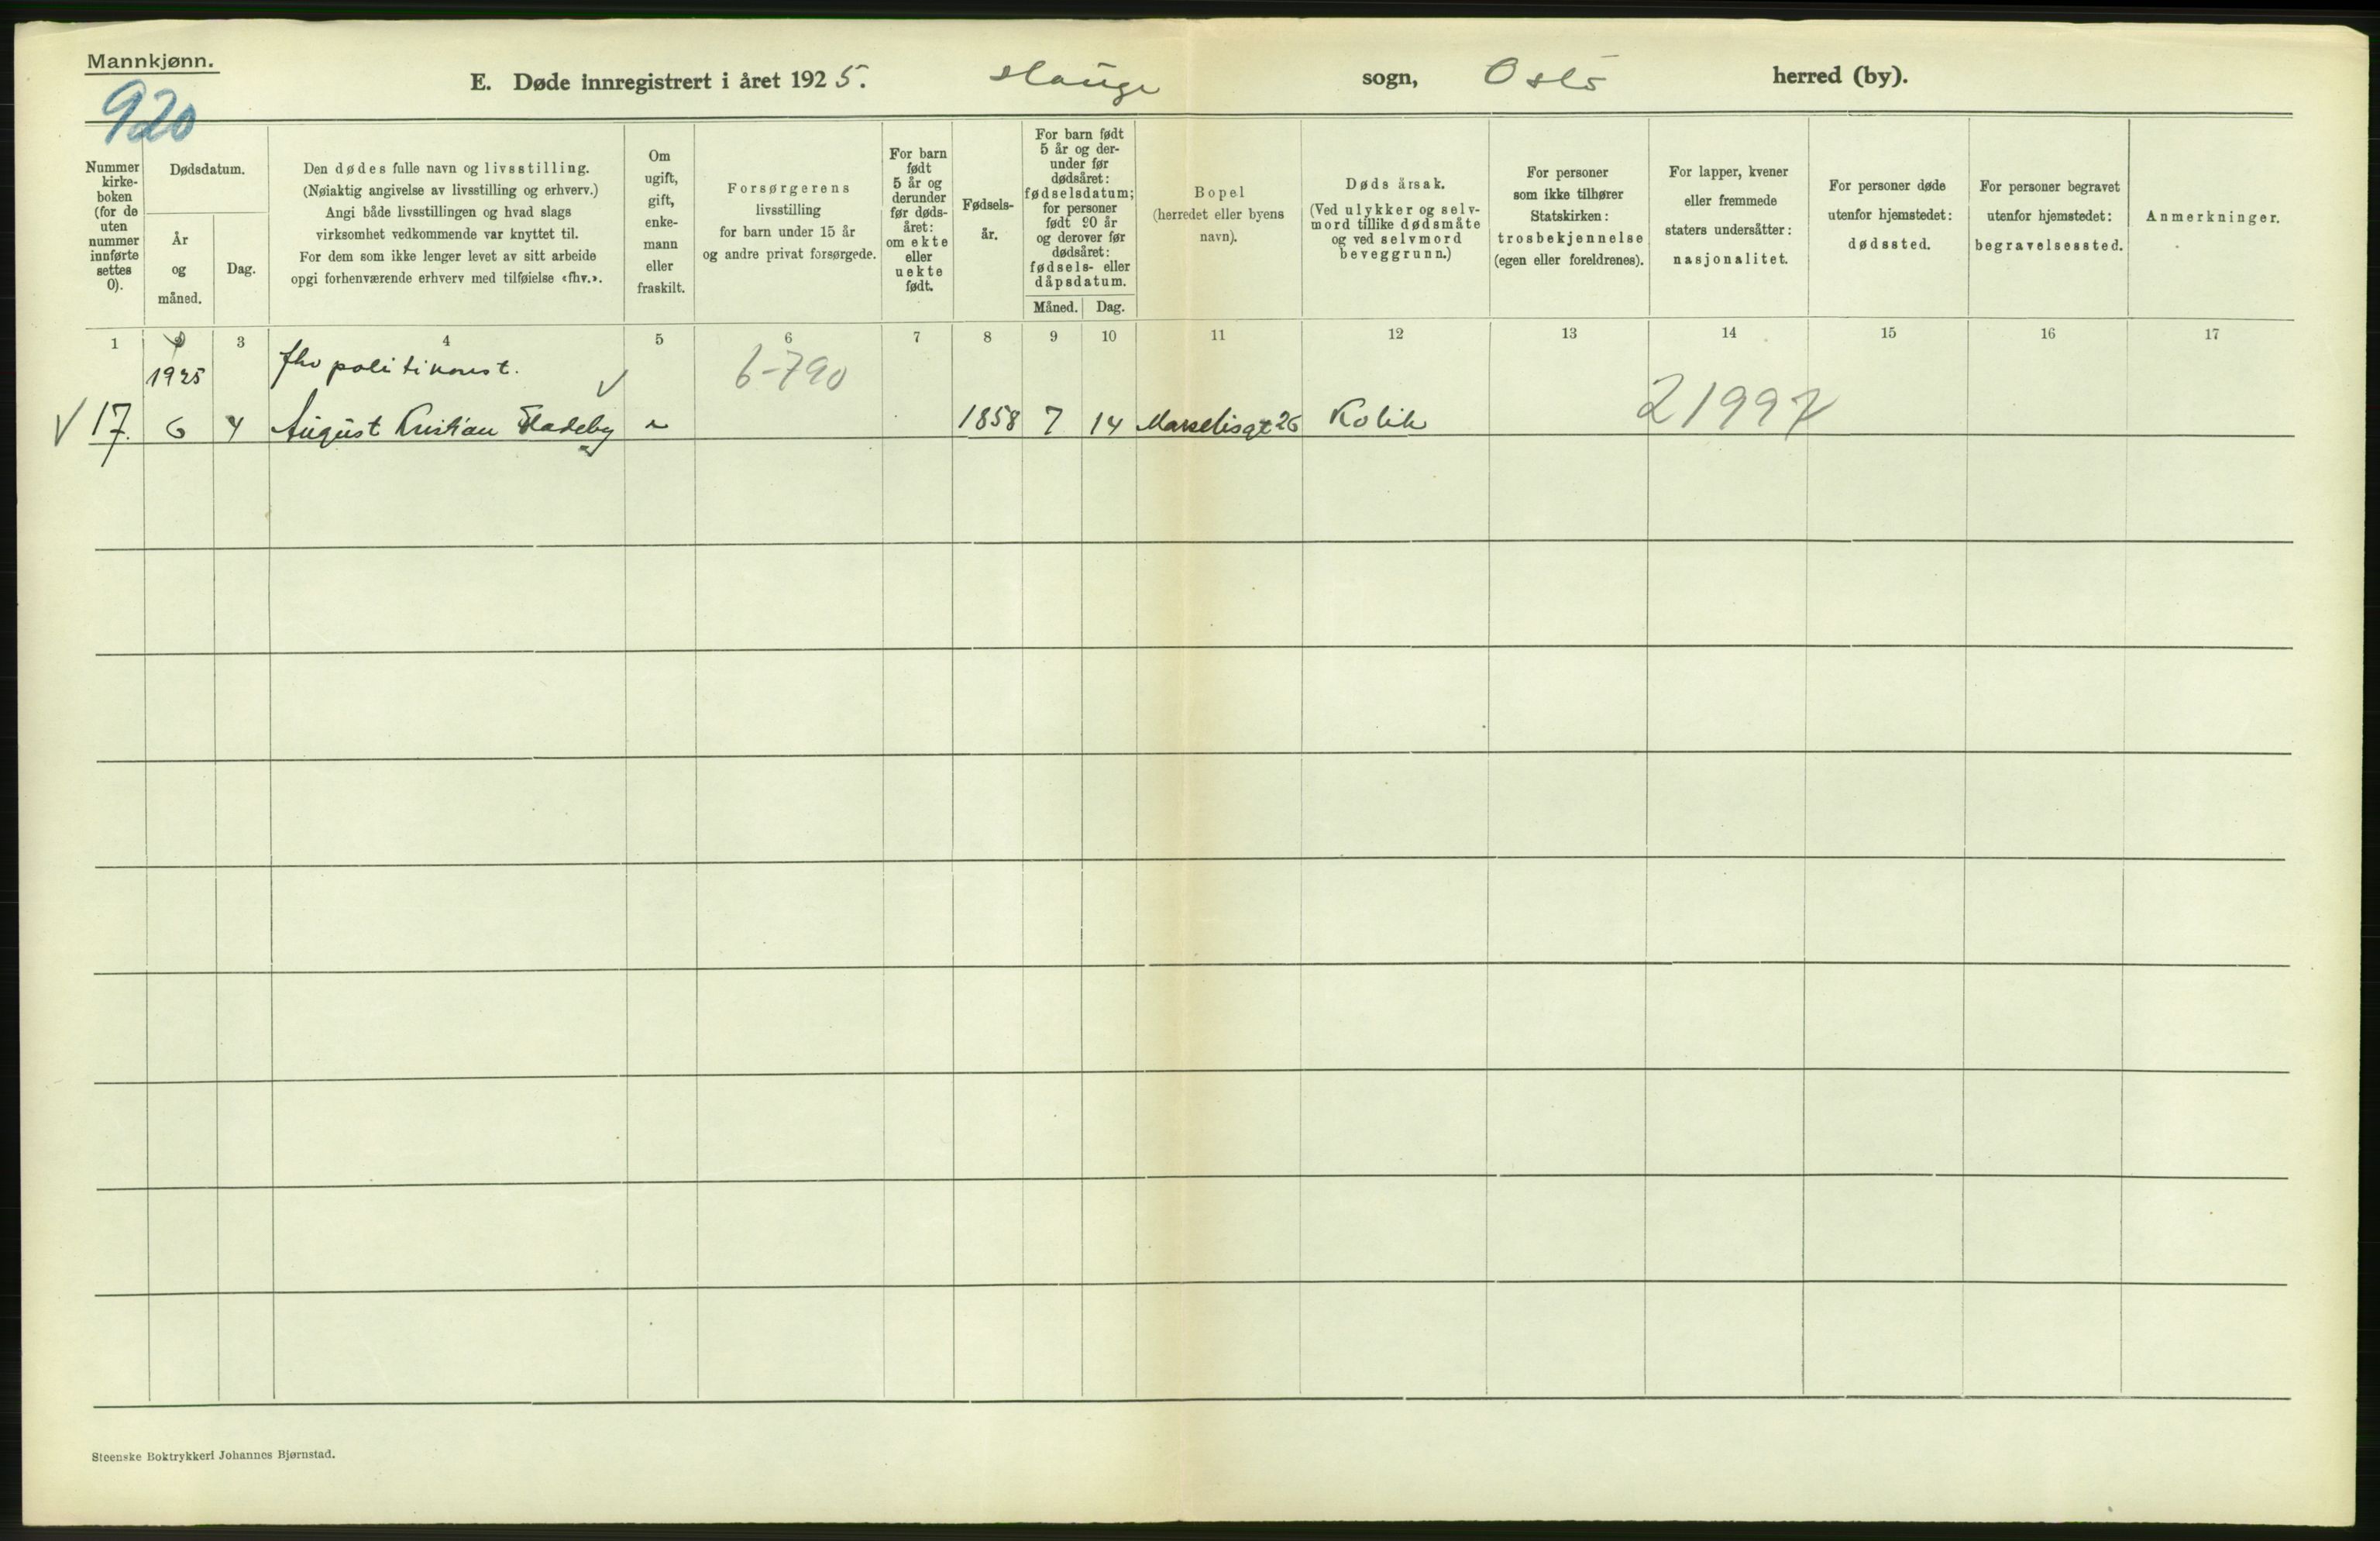 Mannkjønn.
920
E. Døde innregistrert i året 1925. Hauge sogn, Oslo herred (by).
Nummer
kirke-
boken
(for de
uten
nummer
innførte
settes
0).
Dødsdatum.
År
og
måned.
Dag.
Den dødes fulle navn og livsstilling.
(Nøiaktig angivelse av livsstilling og erhverv.)
Angi både livsstillingen og hvad slags
virksomhet vedkommende var knyttet til.
For dem som ikke lenger levet av sitt arbeide
opgi forhenværende erhverv med tilføielse «fhv.».
Om
ugift,
gift,
enke-
mann
eller
fraskilt.
Forsørgerens
livsstilling
for barn under 15 år
og andre privat forsørgede.
For barn
født
5 år og
derunder
før døds-
året:
om ekte
eller
uekte
født.
Fødsels-
år.
For barn født
5 år og der-
under før
dødsåret:
fødselsdatum;
for personer
født 90 år
og derover før
dødsåret:
fødsels- eller
dåpsdatum.
Måned. Dag.
Bopel
(herredet eller byens
navn).
Døds årsak.
(Ved ulykker og selv-
mord tillike dødsmåte
og ved selvmord
beveggrunn.)
For personer
som ikke tilhører
Statskirken:
trosbekjennelse
(egen eller foreldrenes).
For lapper, kvener
eller fremmede
staters undersåtter:
nasjonalitet.
For personer døde
utenfor hjemstedet:
dødssted.
For personer begravet
utenfor hjemstedet:
begravelsessted.
Anmerkninger.
1 3 4 5 6 7 8 9 10 11 12 13 14 15 16 17
1925 fhv politikonst. 6-790
17. 6 4 August Kristian Fladeby 1858 7 14 Marselisgt 26 Kolik 21997
Steenske Boktrykkeri Johannes Bjørnstad.